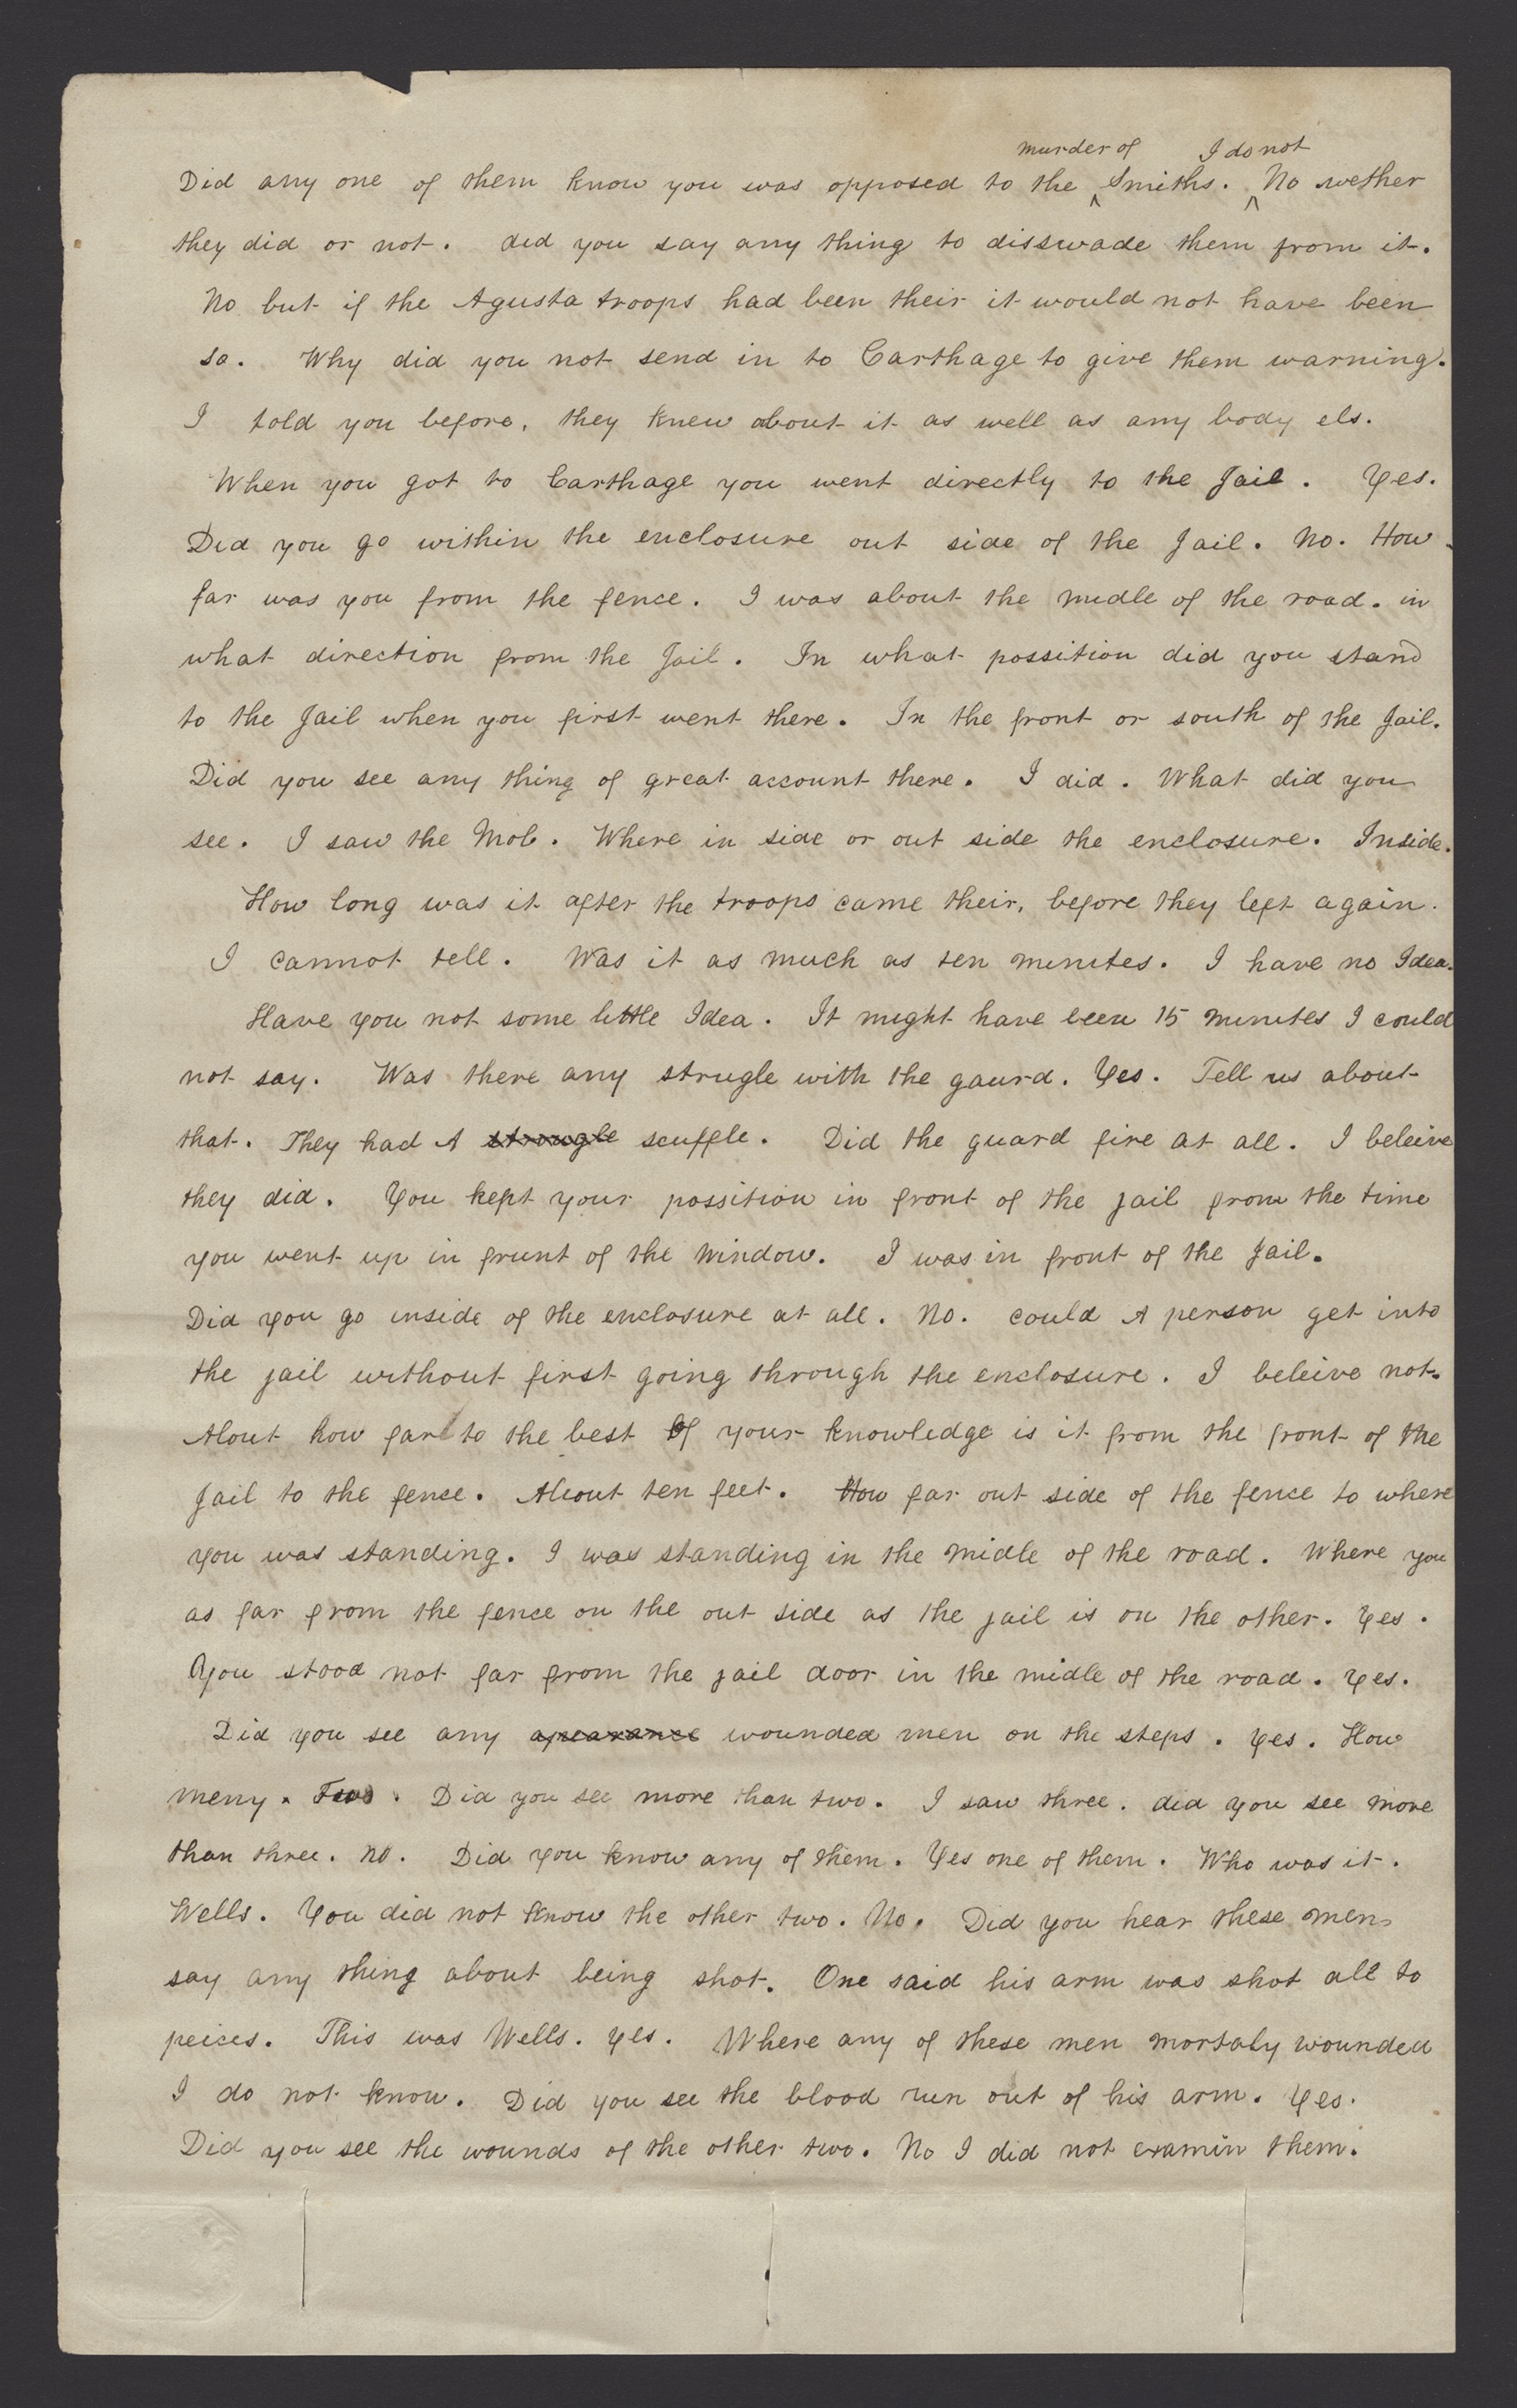 murder of I do not
Did any one of them know you was opposed to the ^ Smiths. ^ No wether
they did or not. did you say any thing to disswade them from it.
No but if the Agusta troops had been their it would not have been
so. Why did you not send in to Carthage to give them warning.
I told you before, they knew about it as well as any body els.
When you got to Carthage you went directly to the Jail. Yes.
Did you go within the enclosure out side of the Jail. No. How
far was you from the fence. I was about the midle of the road. in
what direction from the Jail. In what possition did you stand
to the Jail when you first went there. In the front or south of the Jail.
Did you see any thing of great account there. I did. What did you
see. I saw the Mob. Where in side or out side the enclosure. Inside.
How long was it after the troops came their, before they left again.
I cannot tell. Was it as much as ten minutes. I have no Idea.
Have you not some little Idea. It might have been 15 minutes I could
not say. Was there any strugle with the gaurd. Yes. Tell us about
that. They had A strougle scuffle. Did the guard fire at all. I beleive
they did. You kept your possition in front of the jail from the time
you went up in frunt of the window. I was in front of the Jail.
Did you go inside of the enclosure at all. No. could A person get into
the jail without first going through the enclosure. I beleive not.
About how far to the best of your knowledge is it from the front of the
Jail to the fence. About ten feet. How far out side of the fence to where
you was standing. I was standing in the midle of the road. Where you
as far from the fence on the out side as the jail is on the other. Yes.
You stood not far from the jail door in the midle of the road. Yes.
Did you see any apearance wounded men on the steps. Yes. How
meny. Two. Did you see more than two. I saw three. did you see more
than three. No. Did you know any of them. Yes one of them. Who was it.
Wells. You did not know the other two. No. Did you hear these men
say any thing about being shot. One said his arm was shot all to
peices. This was Wells. Yes. Where any of these men mortaly wounded
I do not know. Did you see the blood run out of his arm. Yes.
Did you see the wounds of the other two. No I did not examin them.